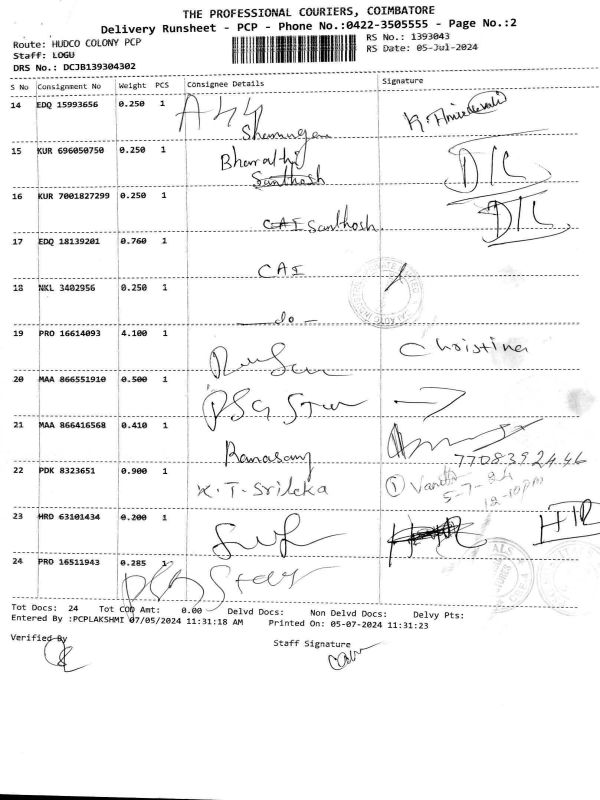 THE PROFESSIONAL COURIERS, COIMBATORE
Delivery Runsheet - PCP - Phone No.:0422-3505555 - Page No.:2
Route: HUDCO COLONY PCP
RS No.: 1393043
Staff: LOGU
RS Date: 05-Jul-2024
DRS No.: DCJB139304302
S No Consignment No Weight PCS Consignee Details Signature
14 EDQ 15993656 0.250 1
15 KUR 696050750 0.250 1 Bharathi D/C
Santhosh
16 KUR 7001827299 0.250 1 D/C
CAI Santhosh
17 EDQ 18139201 0.760 1
CAI
18 NKL 3402956 0.250 1
—do—
19 PRO 16614093 4.100 1 Christina
20 MAA 866551910 0.500 1 PSG
21 MAA 866416568 0.410 1
Ramasamy 7708392446
22 PDK 8323651 0.900 1 K.T-Srileka
5-7-24
12-10pm
23 HRD 63101434 0.200 1
24 PRO 16511943 0.285 1
Tot Docs: 24 Tot COD Amt: 0.00 Delvd Docs: Non Delvd Docs: Delvy Pts:
Entered By :PCPLAKSHMI 07/05/2024 11:31:18 AM Printed On: 05-07-2024 11:31:23
Verified By
Staff Signature